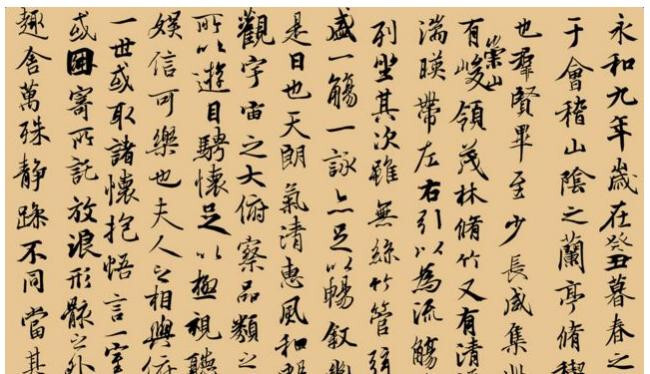 永和九年歲在癸丑暮春之
于會稽山陰之蘭亭脩稧
也羣賢畢至少長咸集此
有崇山峻領茂林脩竹又有清
湍暎帶左右引以為流觴
列坐其次雖無絲竹管弦
盛一觴一詠亦足以暢敘幽
是日也天朗氣清惠風和暢
觀宇宙之大俯察品類之
所以遊目騁懷足以極視聽
娛信可樂也夫人之相與俯
一世或取諸懷抱悟言一室
或因寄所託放浪形骸之外
趣舍萬殊靜躁不同當其